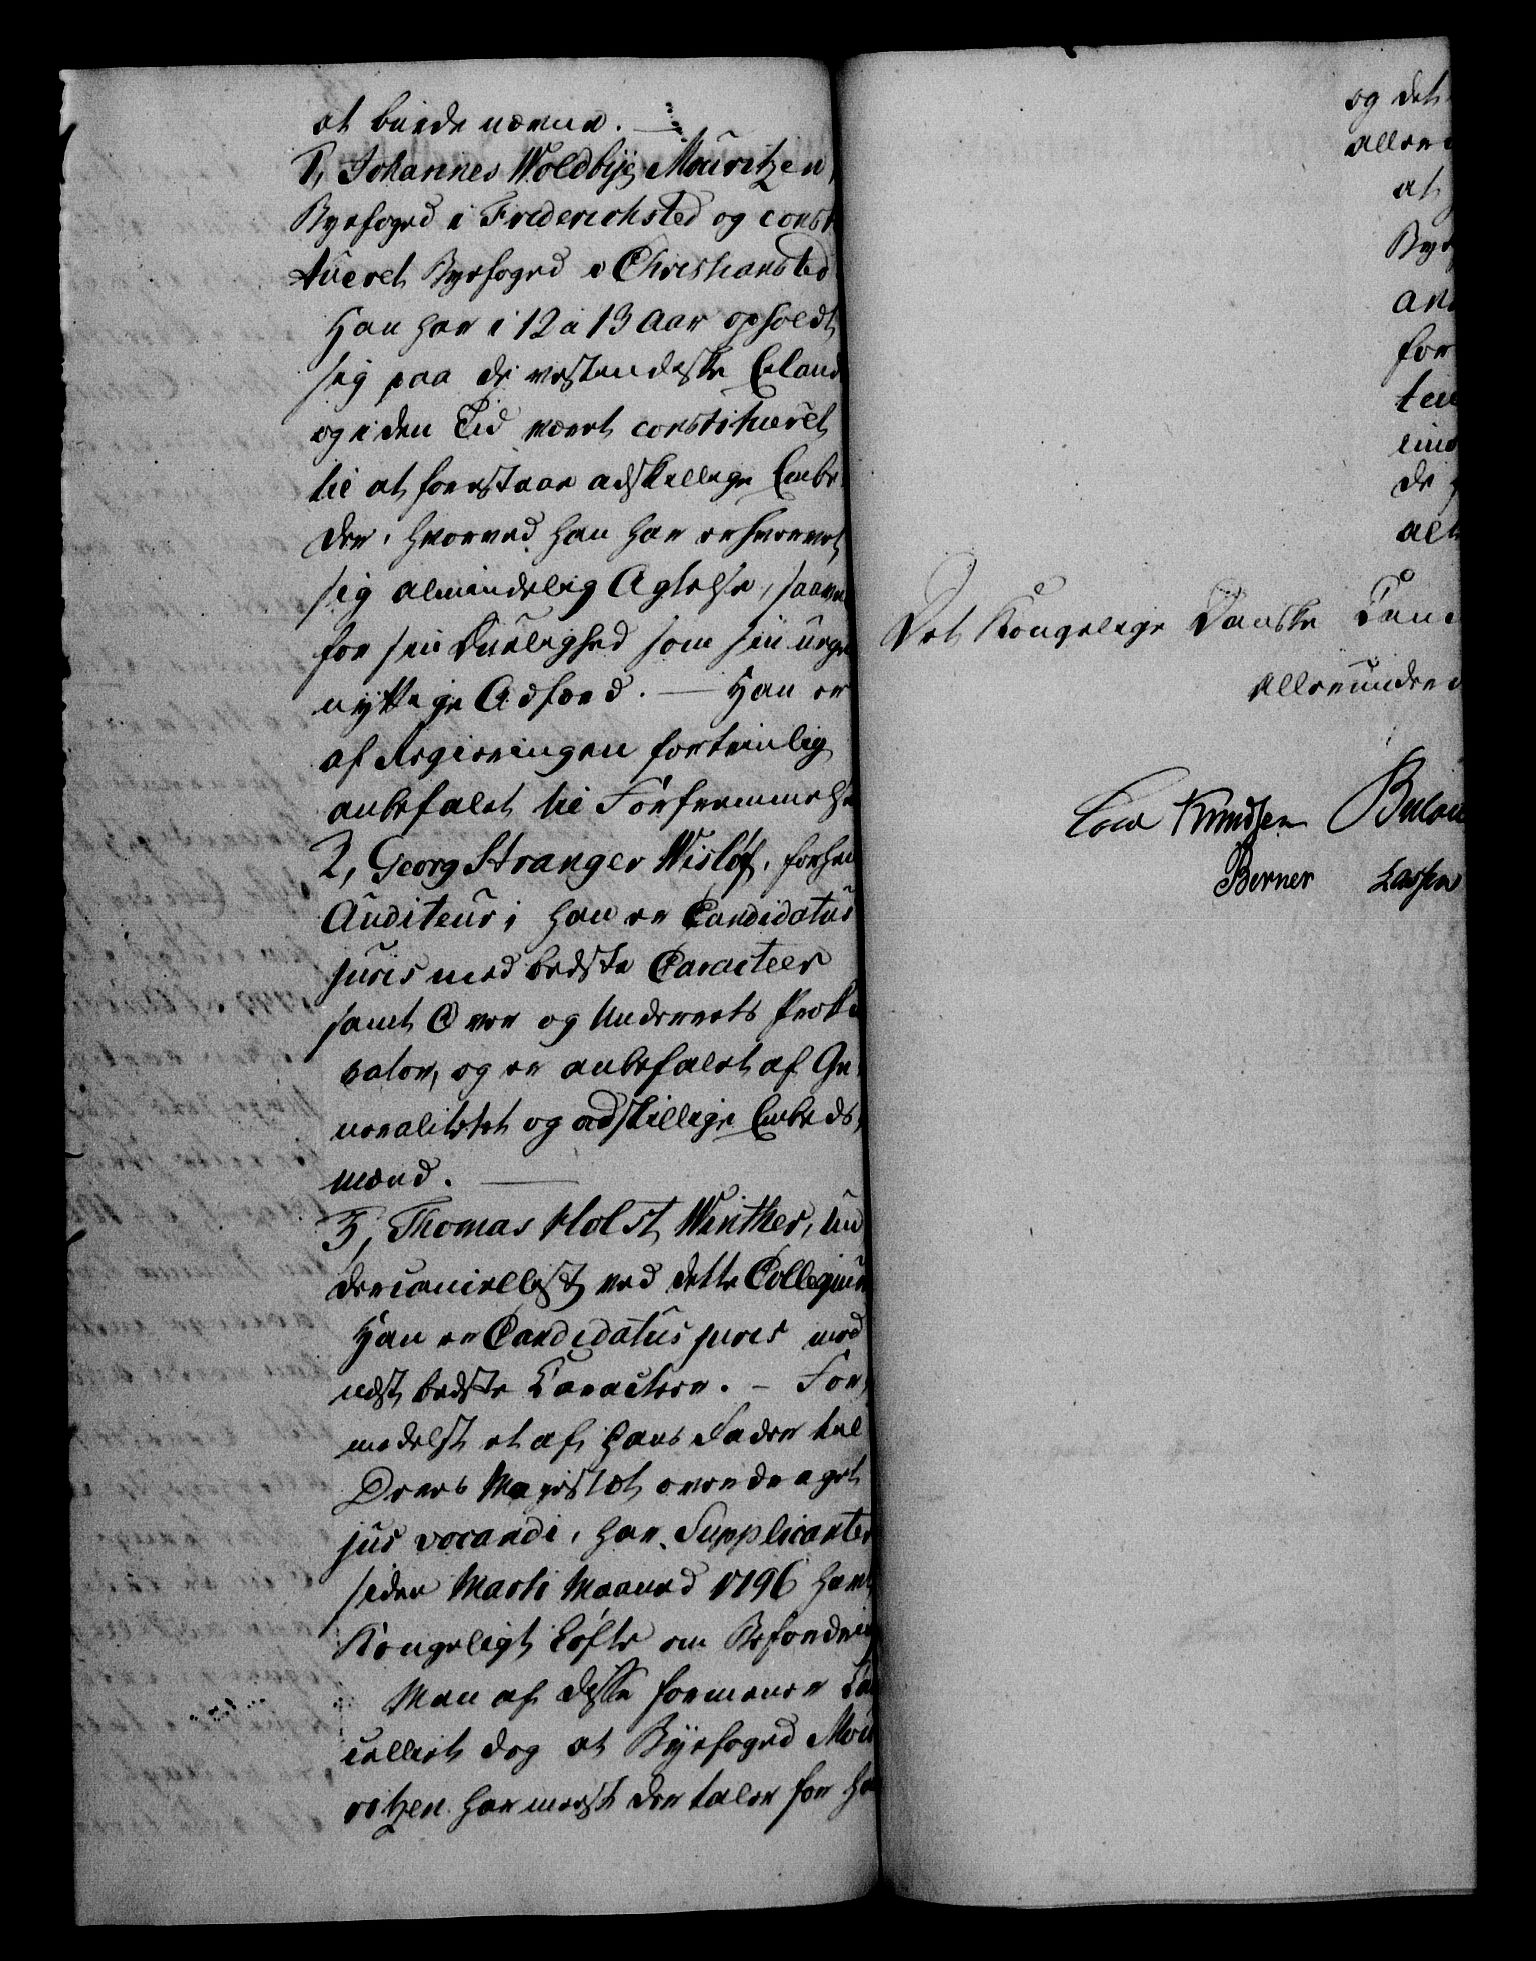 at burde nævne. —
1, Johannes Woldbye Mouritzen,
Byefoged i Friderichsted og const
tueret Byefoged i Christiansted
Han har i 12 a 13 Aar opholdt
sig paa de vestendiske Eiland
og i den Tid været constitueret
til at forestaae adskellige Embe
der, hvorved han har erhvervet
sig almindelig Agtelse, saavel
for sin Duelighed som sin uege
nyttige Adfærd. — Han er
af Regieringen fortrinlig
anbefalet til Forfremmelse
2, Georg Stranger Wisløf, forhen
Auditeur; han er Candidatus
juris med bedste Caracteer
samt Over og Underrets Proku
rator, og er anbefalet af Ge
neralitetet og adskillige Embeds
mænd. —
3, Thomas Holst Winther, Un
dercancellist ved dette Collegium
Han er Candidatus juris med
næst bedste Caracteer. – For
medelst et af hans Fader til
Deres Majestæt overdraget
jus vocandi, har Supplicanten
siden Marti Maaned 1796 havt
Kongeligt Løfte om Befordring
Men af disse formener Can
celliet dog at Byefoged Mou
ritzen har meest der taler for h
og det
aller
at
Bye
an
for
tue
de
alt
Det Kongelige Danske Canc
allerunderd
Cold Knudsen
Berner Lassen